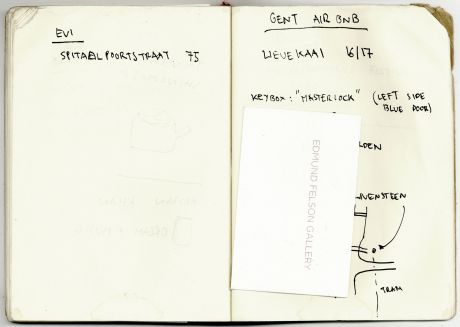 EVI
SPITAALPOORTSTRAAT 75
GENT AIRBNB
LIEVEKAAI 16/17
KEYBOX: "MASTERLOCK" (LEFT SIDE
BLUE DOOR)
LDEN
EDMUND FELSON GALLERY
VENSTEEN
TRAM